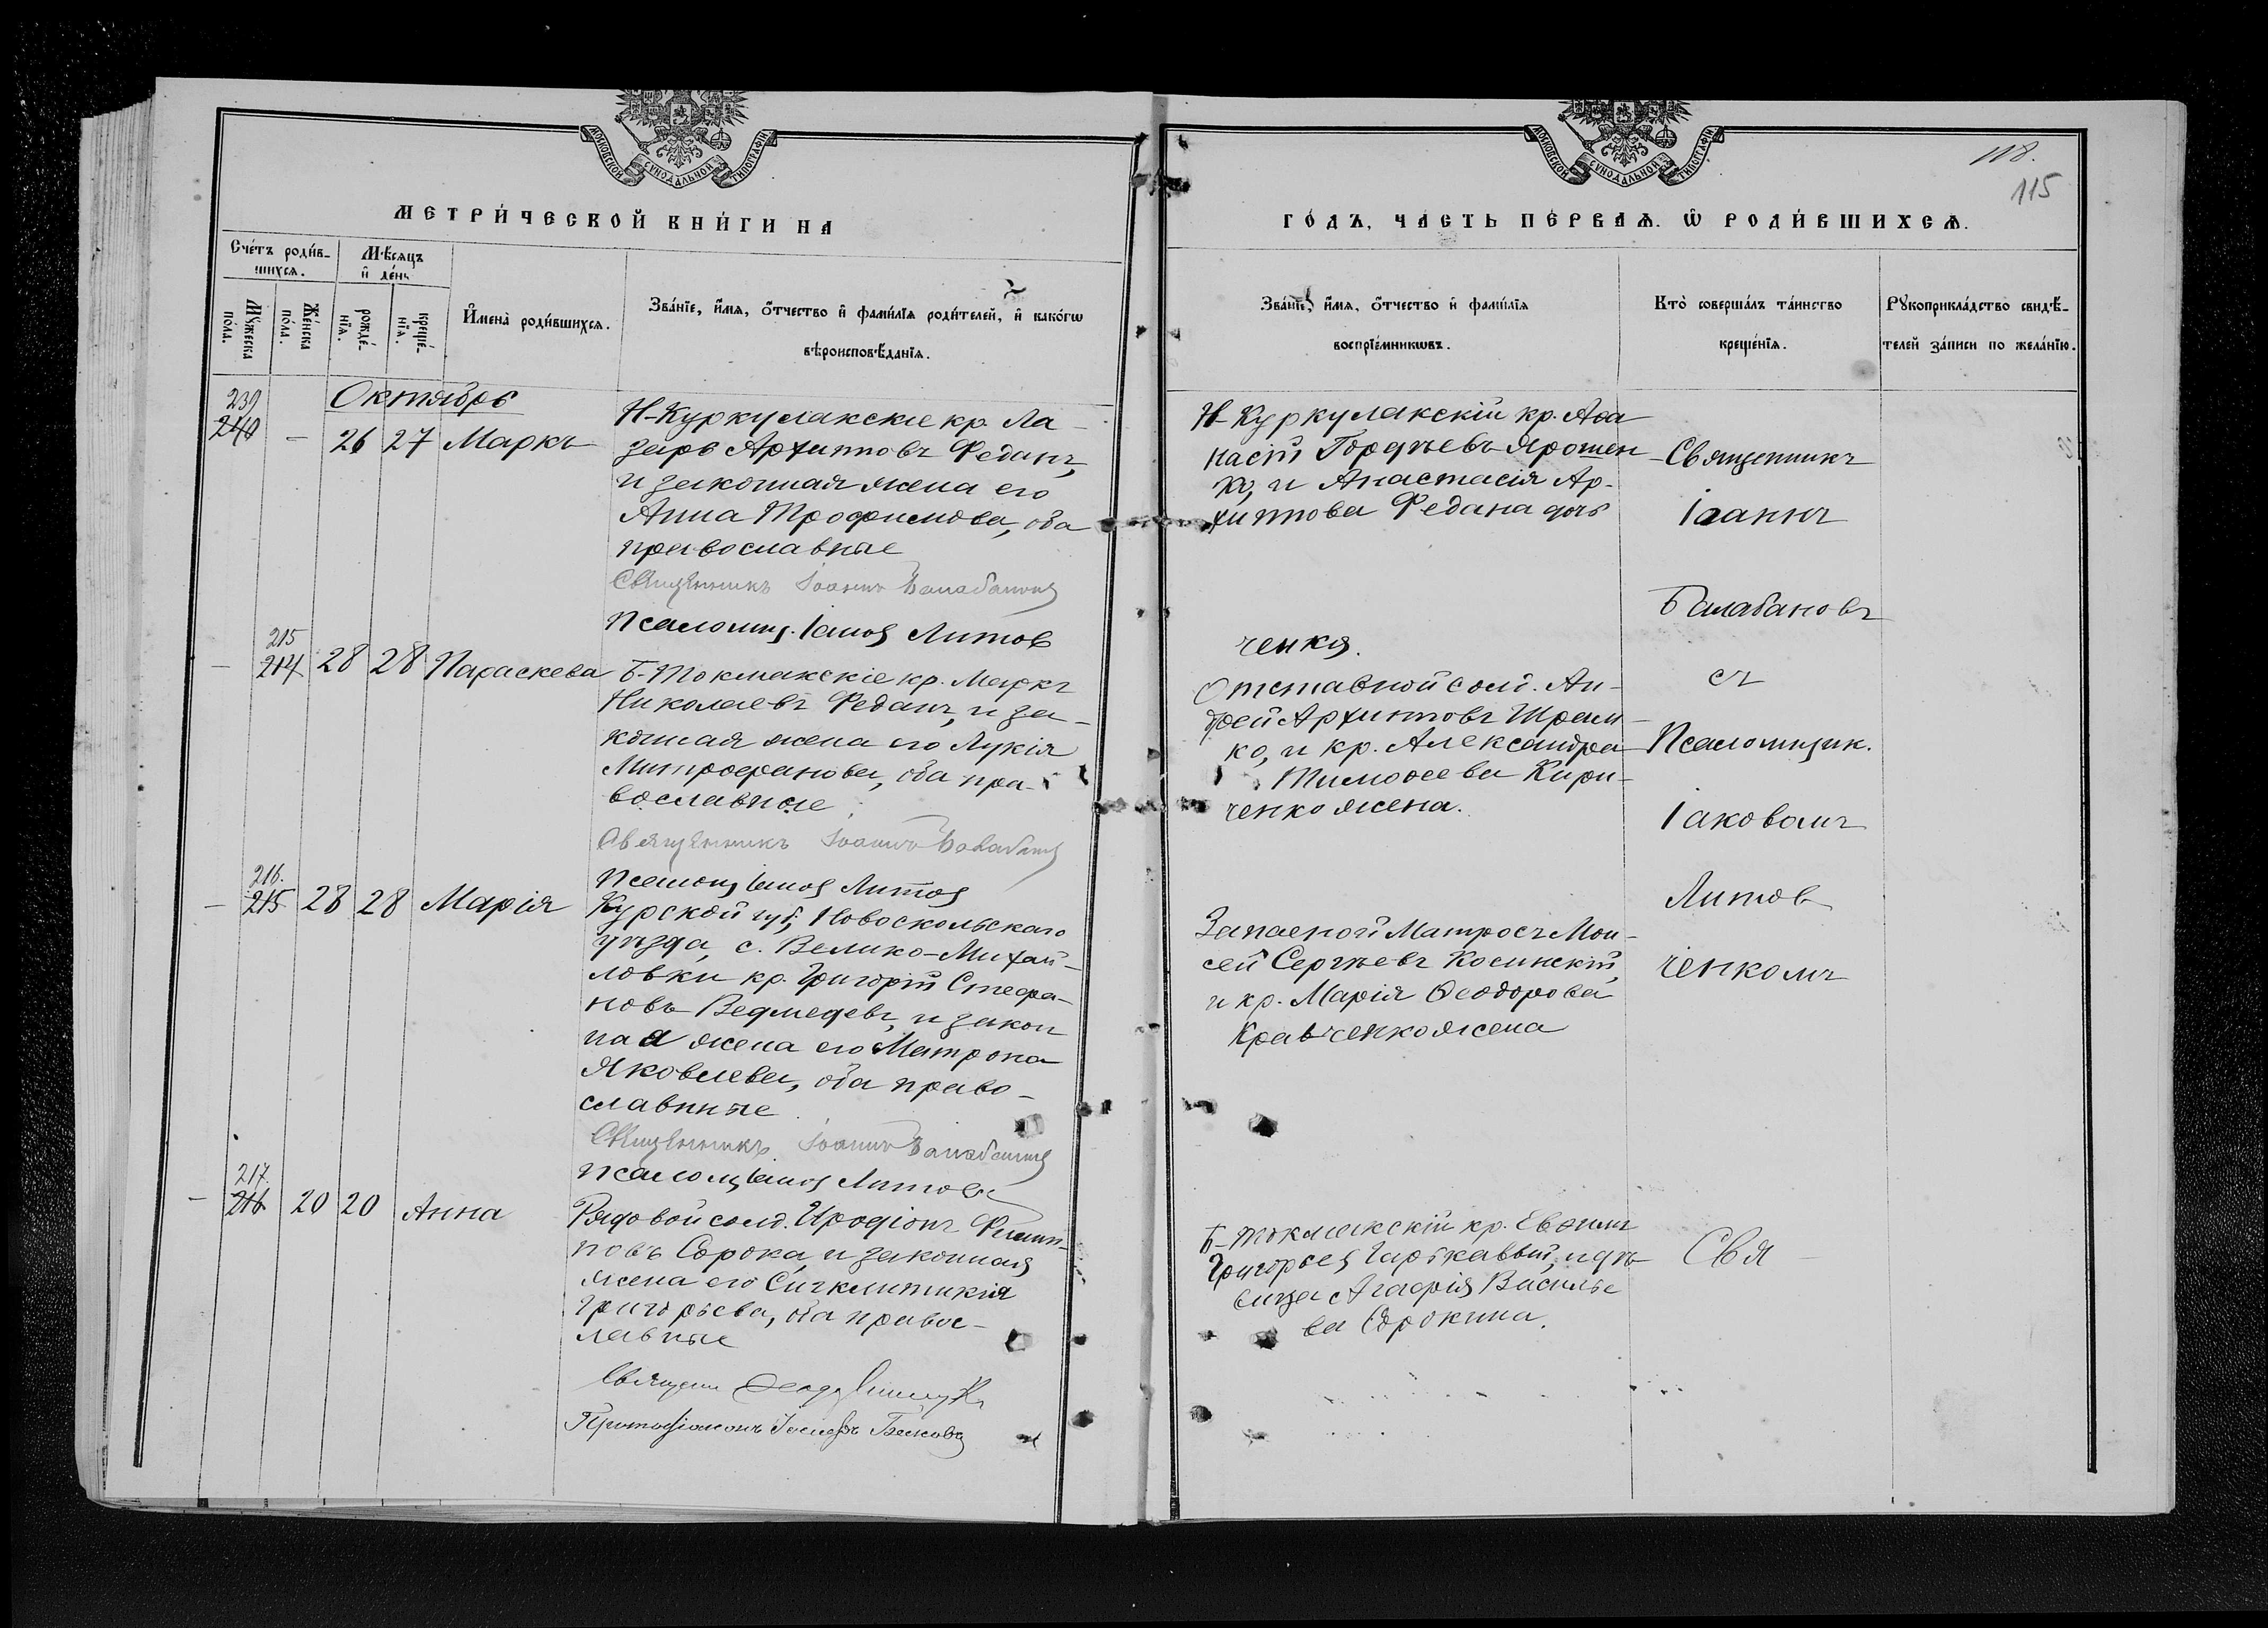 МОСКОВСКОЙ СѴНОДАЛЬНОЙ ТИПОГРАФІИ
МЕТРИ́ЧЕСКОЙ КНИ́ГИ НА
Счéтъ роди́в-
шихся.
Мѣ́сяцъ
и҆ дéнь
Мꙋ́жеска
по́ла.
Же́нска
по́ла.
рождé-
нїѧ.
крещé-
нїѧ.
И҆менà роди́вшихся.
Звáнїе, и҆́мѧ, ѻ҆́тчество и҆ фами́лїѧ роди́телей, и҆ какóгѡ
вѣроисповѣ́данїѧ.
Октябрь
239
240
—
26
27
Маркъ
Н-Куркулакскіе кр. Ла-
зарь Архиповъ Феданъ,
и законная жена его
Анна Трофимова, оба
православные
Священникъ Іоаннъ Балабановъ
Псаломщ. Іаков Литов
—
215
214
28
28
Параскева
Б-Токмакскіе кр. Маркъ
Николаевъ Феданъ, и за-
конная жена его Лукія
Митрофанова, оба пра-
вославные
Священникъ Іоаннъ Балабановъ
Псаломщ Іаков Литов
—
216.
215
28
28
Марія
Курской губ, Новоскольскаго
уѣзда, с. Велико-Михай-
ловки кр. Григорій Стефа-
новъ Ведмедевъ, и закон
ная жена его Матрона
Яковлева, оба право-
славные
Священникъ Іоаннъ Балабановъ
Псаломщ Іаков Литов
—
217.
216
20
20
Анна
Рядовой солд. Иродіонъ Филип-
повъ Сорока, и законная
жена его Сигклитикія
Григорьева, оба правос-
лавные
Священ
Протодіаконъ Іосифъ
МОСКОВСКОЙ СѴНОДАЛЬНОЙ ТИПОГРАФІИ
118.
115
ГО́ДЪ, ЧАСТЬ ПЕ́РВАѦ. Ѡ҆ РОДИ́ВШИХСѦ.
Звáнїе, и҆́мѧ, ѻ҆́тчество и҆ фами́лїѧ
воспрїéмникѡвъ.
Ктò совершáлъ тáинство
крещéнїѧ.
Рꙋкоприклáдство свидѣ́-
телей зáписи по желáнїю.
Н-Куркулакскій кр. Аѳа
насій Гордѣевъ Ярошен
ко, и Анастасія Ар-
хиппова Федана дочь
Священникъ
Іоаннъ
Балабановъ
съ
Псаломщик.
Іаковомъ
Литов
ченкомъ
ченкя.
Отставной солд. Ан-
дрей Архиповъ Шрам-
ко, и кр. Александра
Тимоѳеева Кири-
ченко жена.
Запасной Матросъ Мои-
сей Сергѣевъ Косинскій,
и кр. Марія Ѳеодорова
Кравченко жена
Б-Токмакскій кр. Евѳим
Григорьев Гаркавый, и дѣ
вица Агафія Василье
ва Сорокина.
Свя